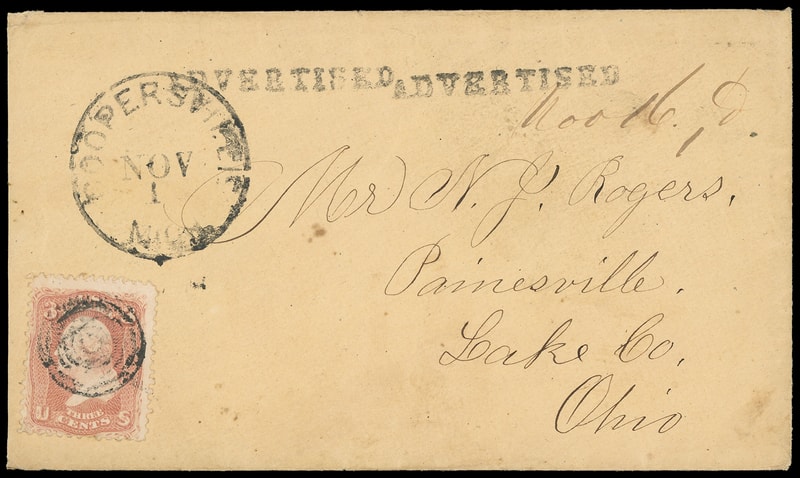 ADVERTISED ADVERTISED
COOPERSVILLE
NOV
1
Mich
Mr N. J. Rogers,
Painesville.
Lake Co,
Ohio
3
U THREE CENTS S